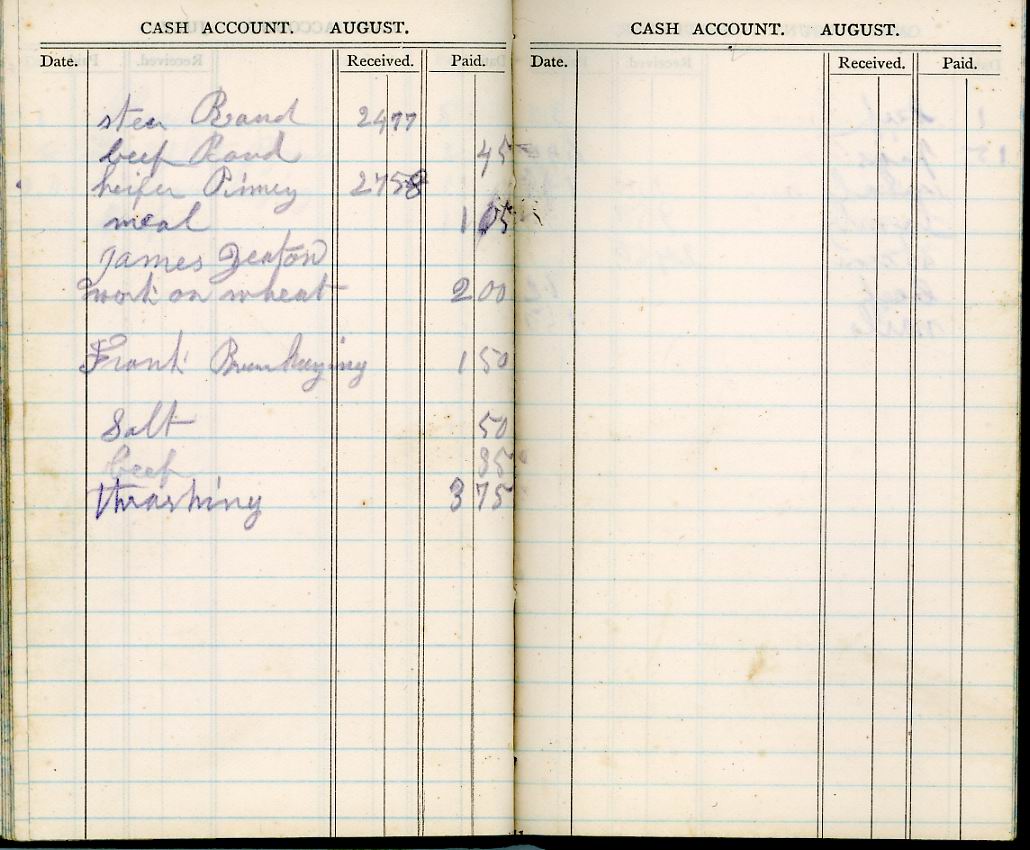 CASH ACCOUNT. AUGUST.
Date. Received. Paid.
steer Rand 24 77
beef Rand 45
heifer Pimey 27 58
meal 1 05
James Deaton
work on wheat 2 00
Frank 1 50
Salt 50
beef 35
thrashing 3 75
CASH ACCOUNT. AUGUST.
Date. Received. Paid.